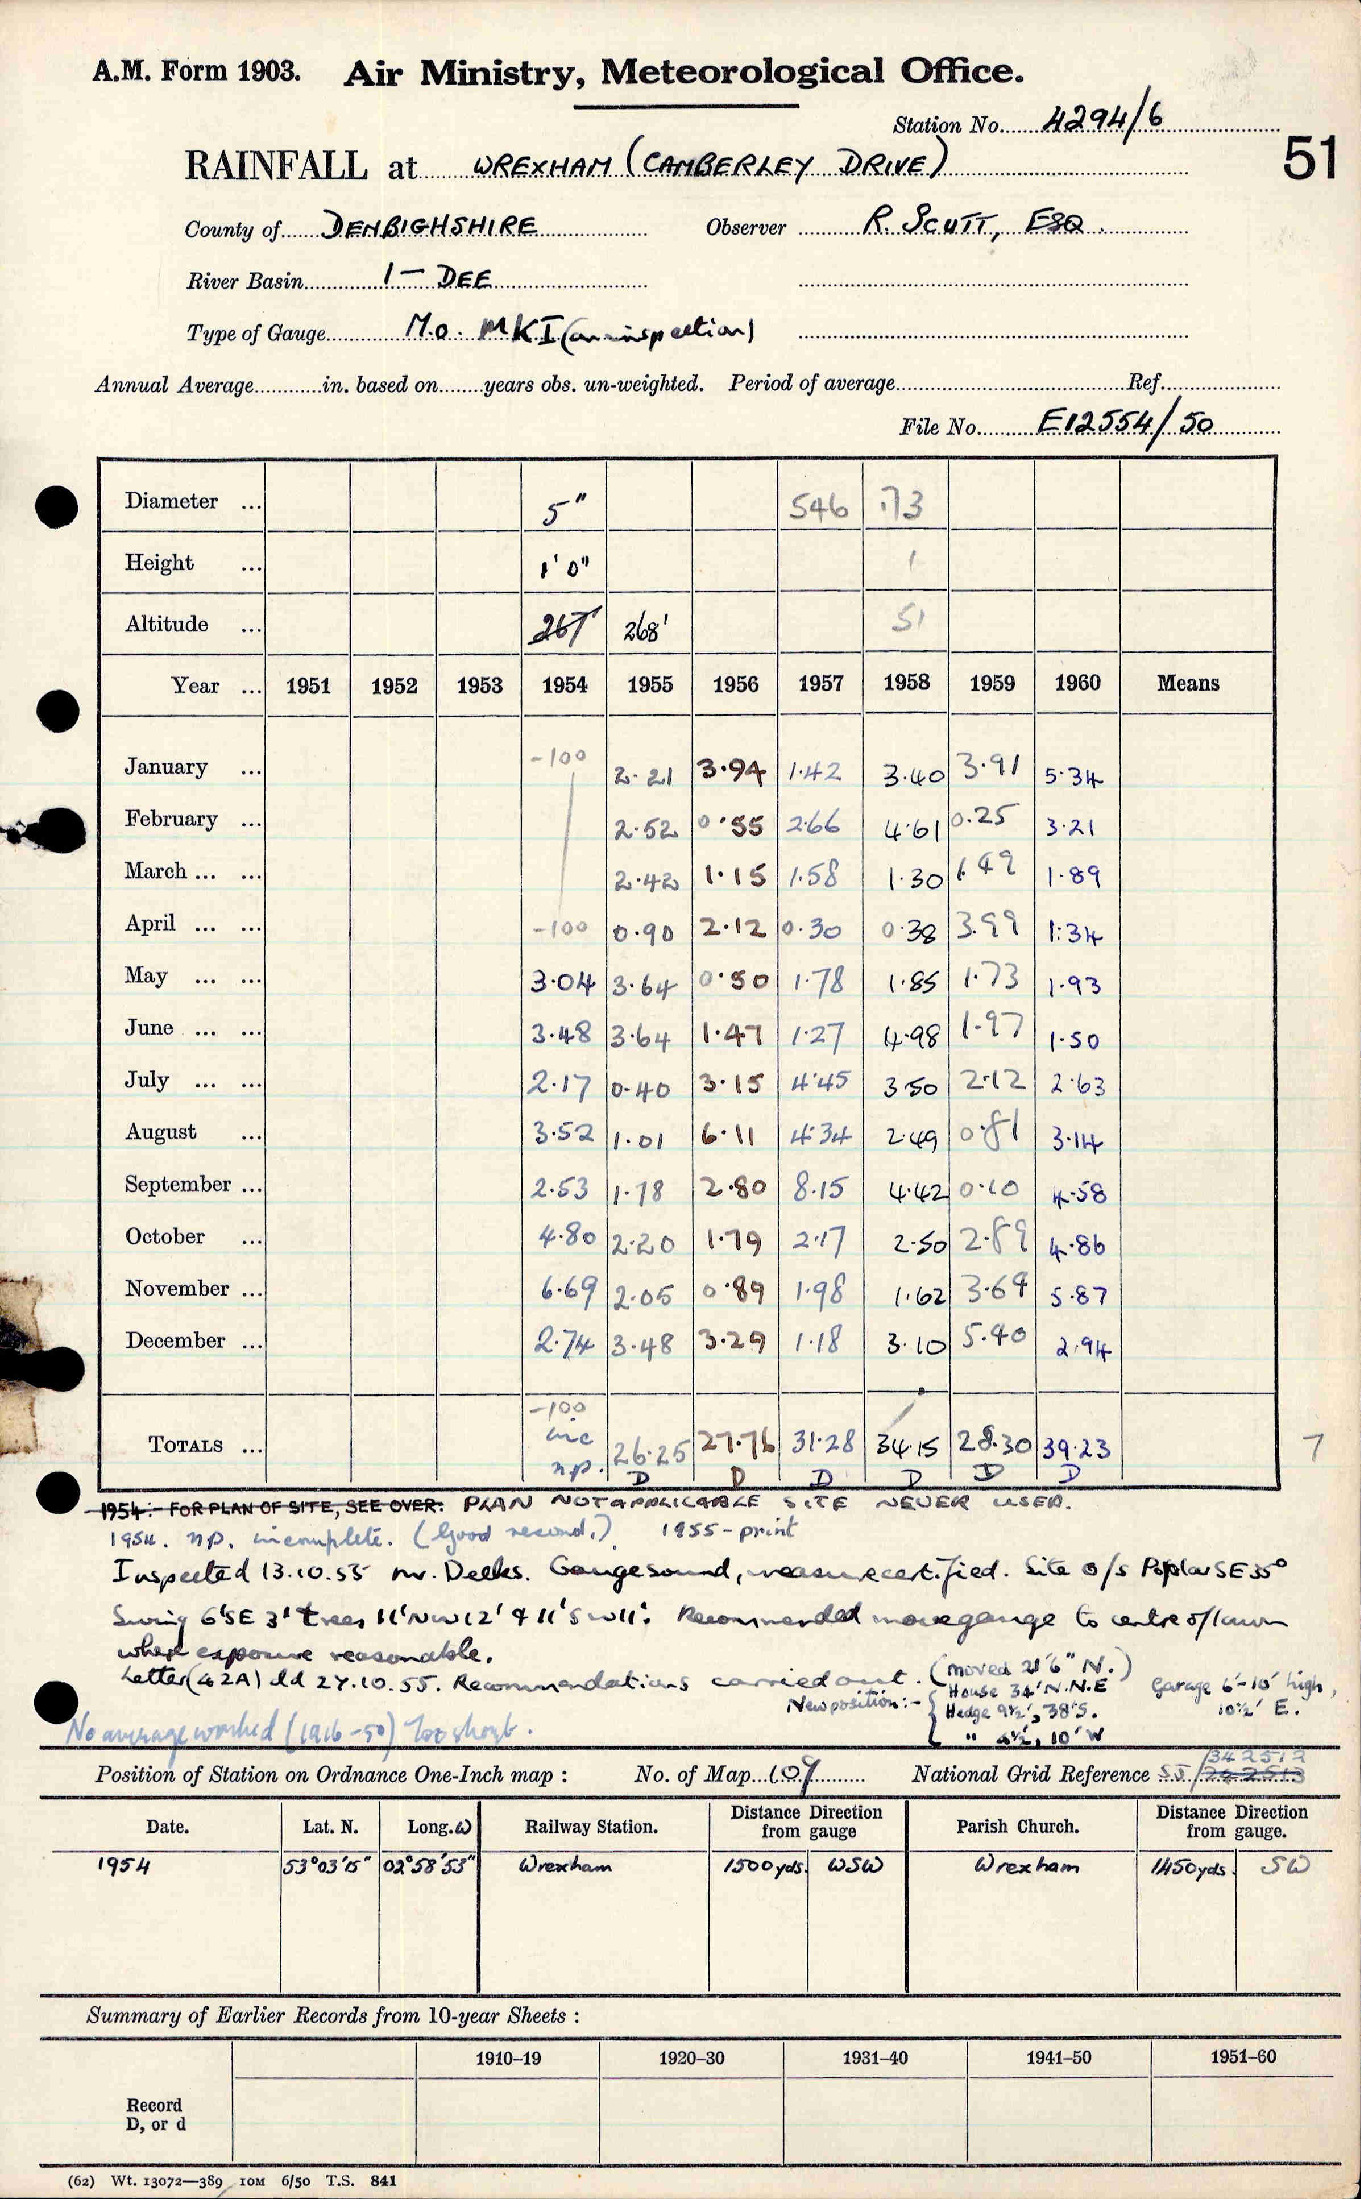 A.M. Form 1903. Air Ministry, Meteorological Office.
Station No. 4294/6
51
RAINFALL at WREXHAM (CAMBERLEY DRIVE)
County of DENBIGHSHIRE Observer R. SCOTT, ESQ.
River Basin 1 - DEE
Type of Gauge M.O. MK I (on inspection)
Annual Average in. based on years obs. un-weighted. Period of average Ref.
File No. E12554/50
Diameter ... 5" 546 .73
Height ... 1' 0" 1
Altitude ... 267 268' 51
Year ... 1951 1952 1953 1954 1955 1956 1957 1958 1959 1960 Means
January ... -100 2.21 3.94 1.42 3.40 3.91 5.34
February ... 2.52 0.55 2.66 4.61 0.25 3.21
March ... ... 2.42 1.15 1.58 1.30 1.49 1.89
April ... ... -100 0.90 2.12 0.30 0.38 3.99 1.34
May ... ... 3.04 3.64 0.50 1.78 1.85 1.73 1.93
June ... ... 3.48 3.64 1.47 1.27 4.98 1.97 1.50
July ... ... 2.17 0.40 3.15 4.45 3.50 2.12 2.63
August ... 3.52 1.01 6.11 4.34 2.49 0.81 3.14
September ... 2.53 1.78 2.80 8.15 4.42 0.10 4.58
October ... 4.80 2.20 1.79 2.17 2.50 2.89 4.86
November ... 6.69 2.05 0.89 1.98 1.62 3.64 5.87
December ... 2.74 3.48 3.29 1.18 3.10 5.40 2.94
-100
TOTALS ... inc 26.25 27.76 31.28 34.15 28.30 39.23 7
n.p. D D D D D D
1954:- FOR PLAN OF SITE, SEE OVER. PLAN NOT APPLICABLE SITE NEVER USED.
1954. n.p. incomplete. (Good record.) 1955 - print
Inspected 13.10.55 Mr. Deeks. Gauge sound, measure certified. Site o/s Poplar SE 35°
Swing 6'SE 3' trees 11'NNW 12' & 11'S W 11'. Recommended move gauge to centre of lawn
where exposure reasonable.
Letter (42A) dd 27.10.55. Recommendations carried out. (moved 21'6" N.)
New position:- House 34' N.N.E Garage 6'-10' high,
Hedge 9½', 38'S. 10½' E.
" 4½', 10' W
No average worked (1916-50) too short.
342512
Position of Station on Ordnance One-Inch map : No. of Map 109 National Grid Reference SJ/342513
Date. Lat. N. Long. W Railway Station. Distance Direction from gauge Parish Church. Distance Direction from gauge.
1954 53°03'15" 02°58'53" Wrexham 1500 yds. WSW Wrexham 1450 yds. SW
Summary of Earlier Records from 10-year Sheets :
1910–19 1920–30 1931–40 1941–50 1951–60
Record
D, or d
(62) Wt. 13072—389 10M 6/50 T.S. 841